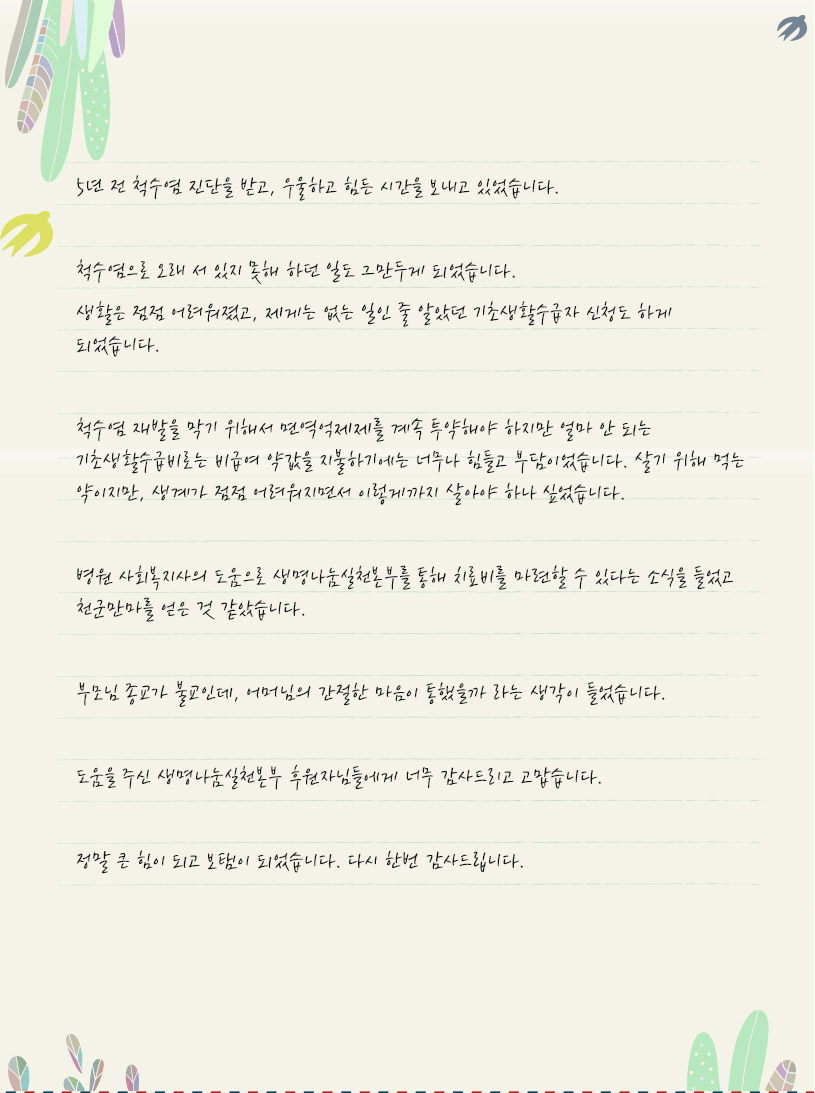 5년 전 척수염 진단을 받고, 우울하고 힘든 시간을 보내고 있었습니다.
척수염으로 오래 서 있지 못해 하던 일도 그만두게 되었습니다.
생활은 점점 어려워졌고, 제게는 없는 일인 줄 알았던 기초생활수급자 신청도 하게
되었습니다.
척수염 재발을 막기 위해서 면역억제제를 계속 투약해야 하지만 얼마 안 되는
기초생활수급비로는 비급여 약값을 지불하기에는 너무나 힘들고 부담이었습니다. 살기 위해 먹는
약이지만, 생계가 점점 어려워지면서 이렇게까지 살아야 하나 싶었습니다.
병원 사회복지사의 도움으로 생명나눔실천본부를 통해 치료비를 마련할 수 있다는 소식을 들었고
천군만마를 얻은 것 같았습니다.
부모님 종교가 불교인데, 어머님의 간절한 마음이 통했을까 라는 생각이 들었습니다.
도움을 주신 생명나눔실천본부 후원자님들에게 너무 감사드리고 고맙습니다.
정말 큰 힘이 되고 보탬이 되었습니다. 다시 한번 감사드립니다.